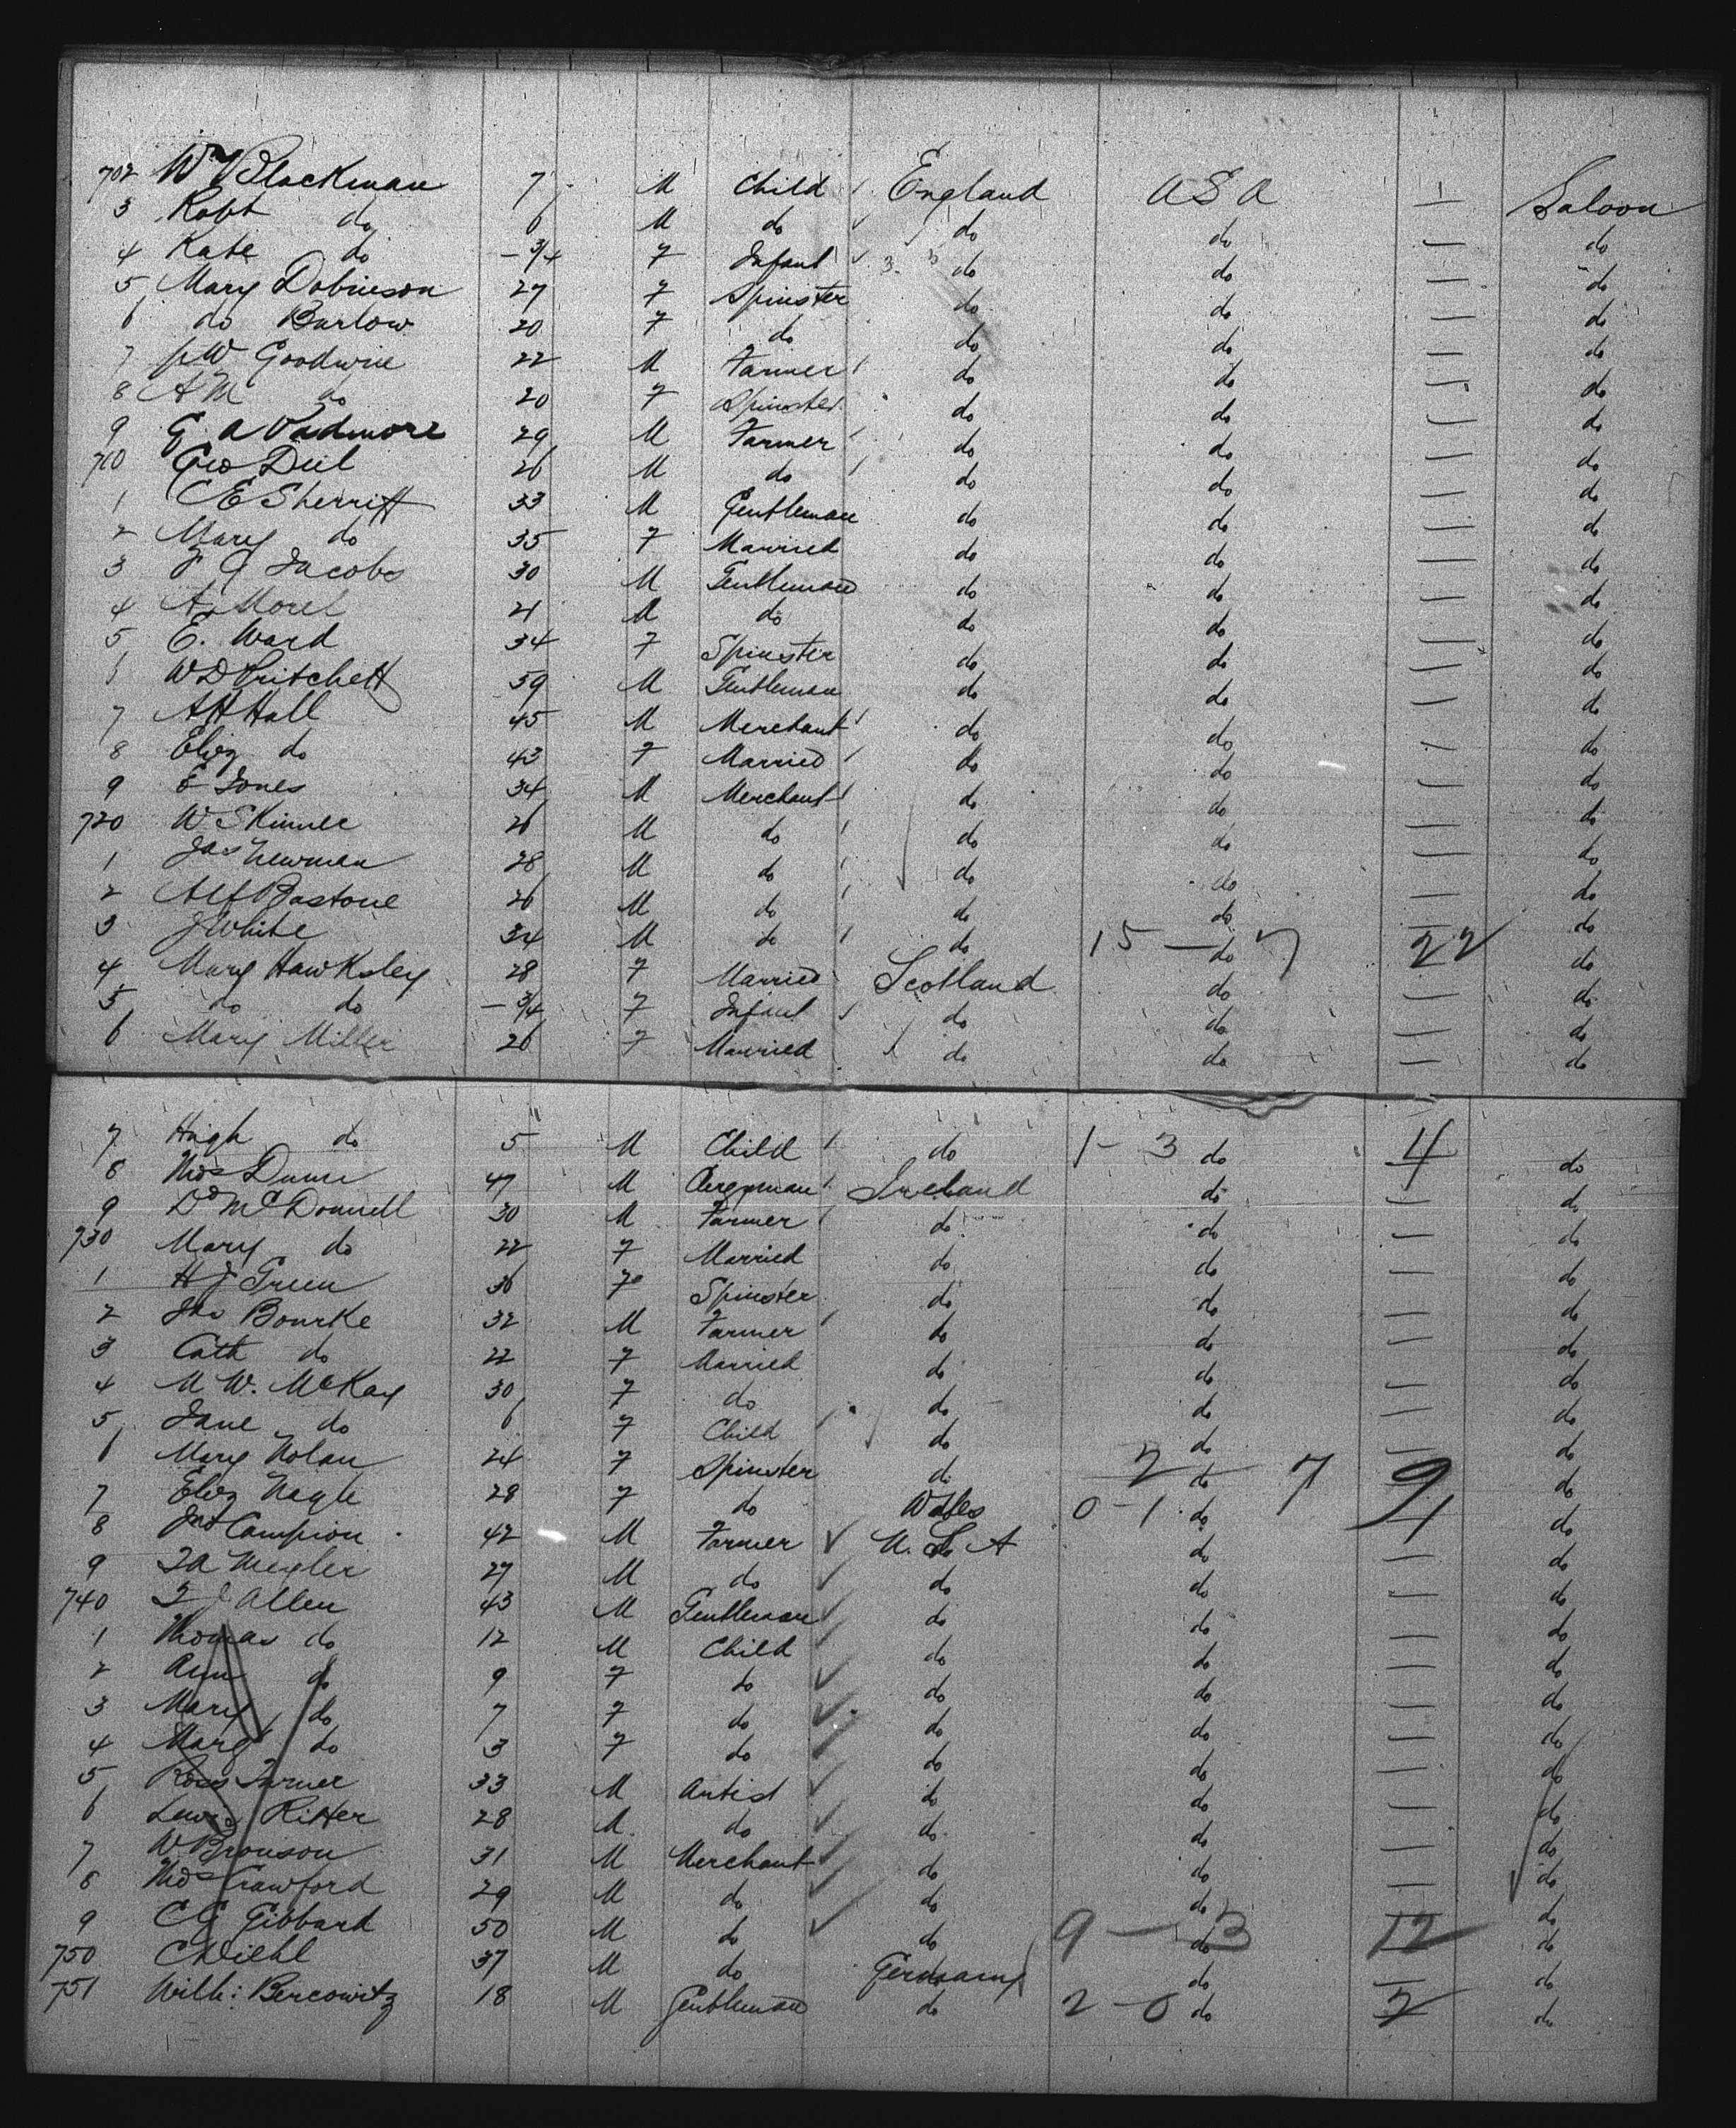 702 Wm Blackman 7 M Child England USA — Saloon
3 Robt do 6 M do do do — do
4 Kate do — 3/4 F Infant do do — do
5 Mary Dobinson 27 F Spinster do do — do
6 do Barlow 20 F do do do — do
7 W Goodwin 22 M Farmer do do — do
8 A M do 20 F Spinster do do — do
9 G A Padmore 29 M Farmer do do — do
710 Geo Deil 26 M do do do — do
1 C E Sherriff 33 M Gentleman do do — do
2 Mary do 35 F Married do do — do
3 F G Jacobs 30 M Gentleman do do — do
4 A Morel 21 M do do do — do
5 E. Ward 34 F Spinster do do — do
6 W D Pritchett 59 M Gentleman do do — do
7 A H Hall 45 M Merchant do do — do
8 Eliz do 43 F Married do do — do
9 E Jones 34 M Merchant do do — do
720 W Skinner 26 M do do do — do
1 Jas Newman 28 M do do do — do
2 Alf Bastone 26 M do do do — do
3 J White 34 M do do 15 — do 7 22 do
4 Mary Hawksley 28 F Married Scotland do — do
5 do do — 3/4 F Infant do do — do
6 Mary Miller 26 F Married do do — do
7 Hugh do 5 M Child do 1 - 3 do 4 do
8 Thos Dunn 47 M Clergyman Ireland do — do
9 Dd McDonnell 30 M Farmer do do — do
730 Mary do 22 F Married do do — do
1 H J Green 36 F Spinster do do — do
2 Jno Bourke 32 M Farmer do do — do
3 Cath do 22 F Married do do — do
4 M W. McKay 30 F do do do — do
5 Jane do 6 F Child do do — do
6 Mary Nolan 24 F Spinster do 2 — do 7 9 do
7 Eliz Nagle 28 F do Wales 0 - 1 do 1 do
8 Jno Campion 42 M Farmer U. S. A do — do
9 27 M do do do — do
740 J Allen 43 M Gentleman do do — do
1 Thomas do 12 M Child do do — do
2 Ann do 9 F do do do — do
3 Mary do 7 F do do do — do
4 Marg do 3 F do do do — do
5 Ross Turner 33 M Artist do do — do
6 Lewis Ritter 28 M do do do — do
7 W Bronson 31 M Merchant do do — do
8 Thos Crawford 29 M do do do — do
9 C G Gibbard 50 M do do 9 — 3 do 12 do
750 C Diehl 37 M do Germany do — do
751 Willi: Bercowitz 18 M Gentleman do 2 - 0 do 2 do